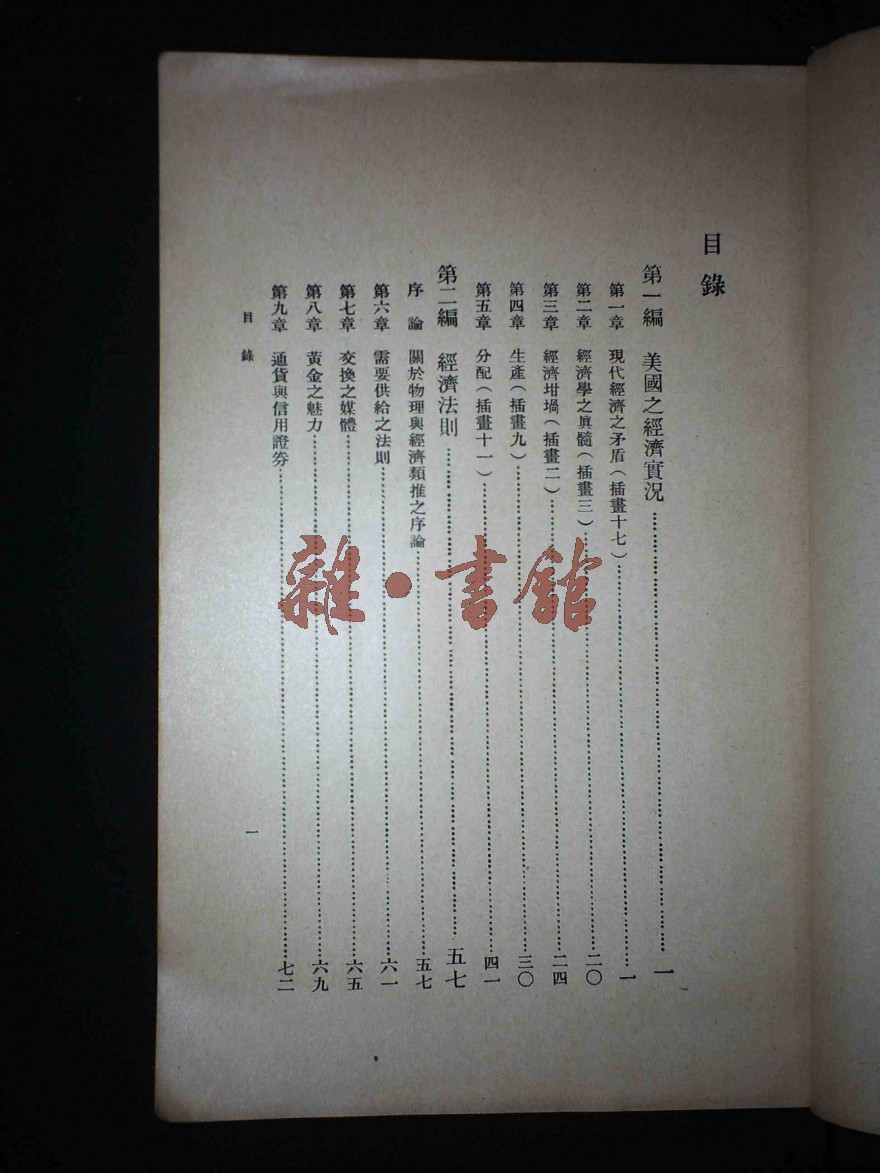 目錄
第一編 美國之經濟實況……一
第一章 現代經濟之矛盾（插畫十七）……一
第二章 經濟學之眞髓（插畫三）……二〇
第三章 經濟坩堝（插畫二）……二四
第四章 生產（插畫九）……三〇
第五章 分配（插畫十一）……四一
第二編 經濟法則……五七
序論 關於物理與經濟類推之序論……五七
第六章 需要供給之法則……六一
第七章 交換之媒體……六五
第八章 黃金之魅力……六九
第九章 通貨與信用證券……七二
目錄 一
雜·書館